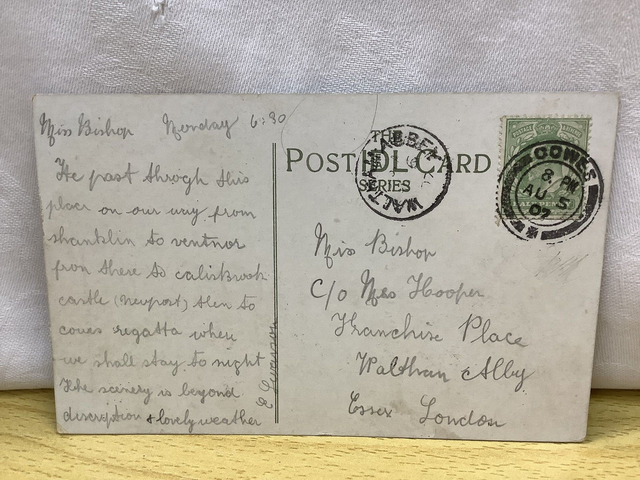 Miss Bishop Monday 6:30
We past throgh this
place on our way from
shanklin to ventnor
from there to calisbrook
castle (Newport) then to
cowes regatta when
we shall stay to night
the scenery is beyond
discreption & lovely weather
THE
POST IDL CARD
SERIES
WALTHAM ABBEY
COWES
8 PM
AU 5
07
Miss Bishop
C/o Mrs Hooper
Franchise Place
Waltham Abby
Essex London